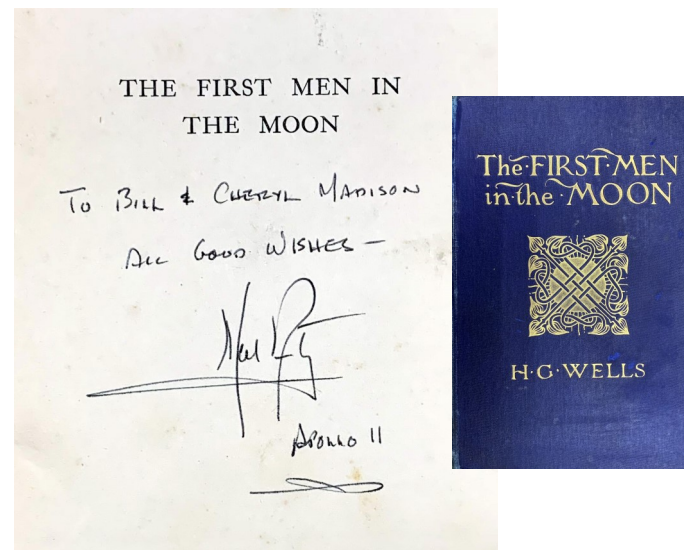 THE FIRST MEN IN
THE MOON
To Bill & Cheryl Madison
All Good Wishes —
Neil
Apollo 11
The·FIRST·MEN
in·the·MOON
H·G·WELLS